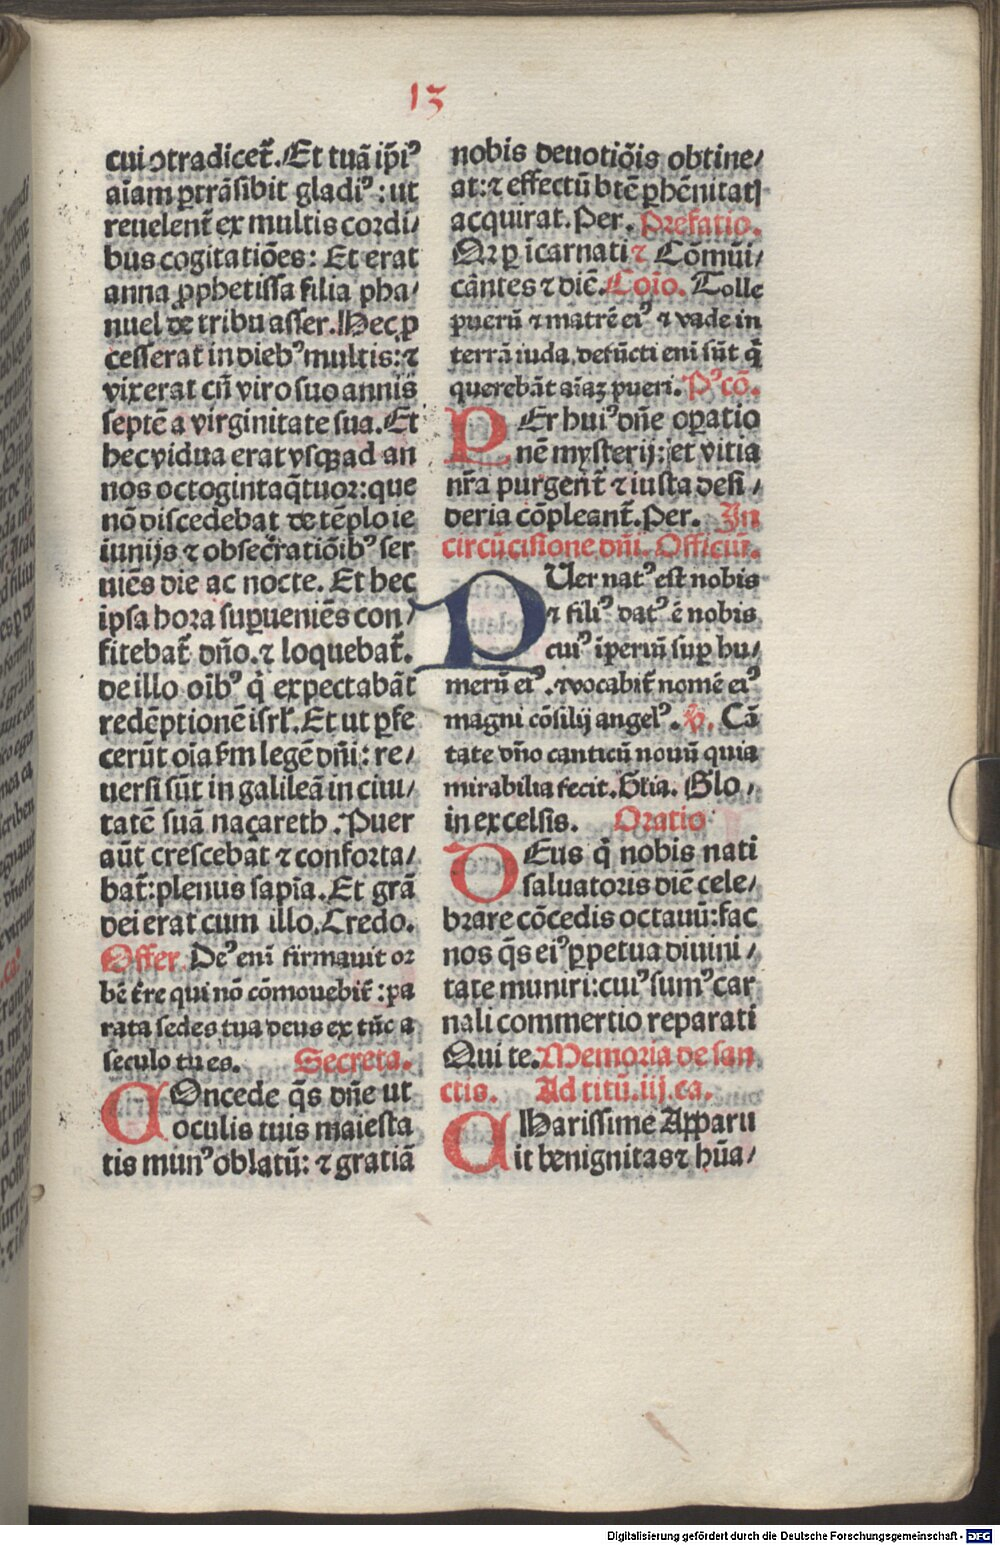 13
cui ꝯtradicet̃. Et tuã ip̃iꝰ
aĩam ꝑtrãsibit gladiꝰ: ut
reuelent̃ ex multis cordi/
bus cogitatiões: Et erat
anna ꝓphetissa filia pha/
nuel de tribu asser. Hec ꝓ
cesserat in diebꝰ multis: ⁊
vixerat cũ viro suo annis
septẽ a virginitate sua. Et
hec vidua erat vsqꝫ ad an
nos octogintaq̃tuor: que
nõ discedebat de tẽplo ie
iunijs ⁊ obsecr̃atiõibꝰ ser
uiẽs die ac nocte. Et hec
ipsa hora suꝑueniẽs con/
fitebat̃ dño. ⁊ loquebat̃.
de illo oĩbꝰ q̇ expectabãt
redẽptionẽ isrl̃. Et ut ꝑfe
cerũt oĩa ẜm legẽ dñi: re/
uersi sũt in galileã in ciui/
tatẽ suã naçareth. Puer
aũt crescebat ⁊ conforta/
bat̃: plenus sapĩa. Et grã
dei erat cum illo. Credo.
Offer. Deꝰ eni firmauit or
bẽ t̃re qui nõ cõmouebit̃: pa
rata sedes tua deus ex tũc a
seculo tu es. Secreta.
COncede q̃s dñe ut
oculis tuis maiesta
tis munꝰ oblatũ: ⁊ gratiã
nobis deuotiõis obtine/
at: ⁊ effectũ btẽ ꝑhẽnitatꝭ
acquirat. Per. Prefatio.
Qꝛ ꝑ ĩcarnati ⁊ Cõmũi/
cãntes ⁊ diẽ. Coĩo. Tolle
puerũ ⁊ matrẽ eiꝰ ⁊ vade in
terrã iuda. defũcti eni sũt q̇
querebãt aĩaꝫ pueri. Pꝰcõ.
PEr huiꝰ dñe oꝑatio
nẽ mysterij: et vitia
nr̃a purgent̃ ⁊ iusta desi/
deria cõpleant̃. Per. In
circũcisione dñi. Officiũ.
PUer natꝰ est nobis
⁊ filiꝰ datꝰ ẽ nobis
cuiꝰ iperiũ suꝑ hu/
merũ eiꝰ. ⁊ vocabit̃ nomẽ eiꝰ
magni cõsilij angelꝰ. ℣. Cã
tate dño canticũ nouũ quia
mirabilia fecit. Gl̃ia. Glo/
in excelsis. Oratio
DEus q̇ nobis nati
saluatoris diẽ cele/
brare cõcedis octauũ: fac
nos q̃s eiꝰ ꝑpetua diuini/
tate muniri: cuiꝰ sumꝰ car
nali commertio reparati
Qui te. Memoria de san
ctis. Ad titũ. iij. ca.
CHarissime Apparu
it benignitas ⁊ hũa/
Digitalisierung gefördert durch die Deutsche Forschungsgemeinschaft - DFG